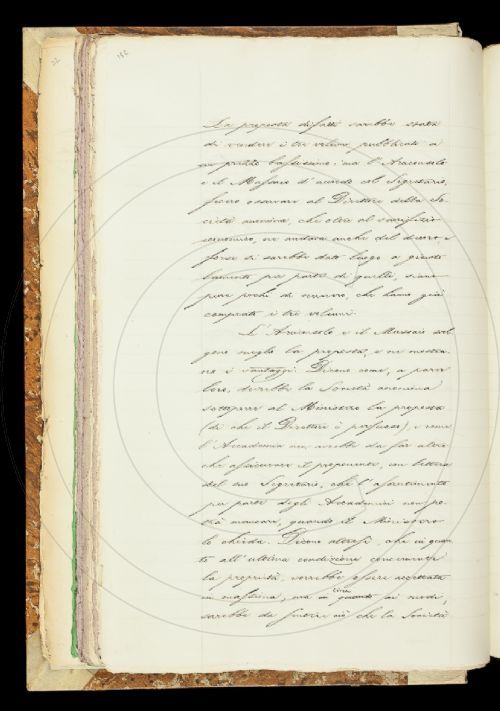 182
La proposta difatti sarebbe stata
di vendere i tre volumi pubblicati a
un prezzo bassissimo: ma l'Arciconsolo
e il Massaio d'accordo col Segretario,
fecero osservare al Direttore della So-
cietà anonima, che oltre al sacrifizio
economico, ne andava anche del decoro e
forse si sarebbe dato luogo a giusti
lamenti per parte di quelli, siano
pure pochi di numero, che hanno già
comprato i tre volumi.
L'Arciconsolo e il Massaio svol
gono meglio la proposta, e ne mostra-
no i vantaggi. Dicono come, a parer
loro, dovrebbe la Società anonima
sottoporre al Ministero la proposta
(di che il Direttore è persuaso), e come
l'Accademia non avrebbe da far altro
che assicurare il proponente, con lettera
del suo Segretario, che l'assentimento
per parte degli Accademici non po-
trà mancare, quando il Ministero
lo chieda. Dicono altresì, che in quan
to all'ultima condizione concernente
la proprietà, sarebbe essere accettata
in massima, ma in quanto poi
sarebbe da che la Società